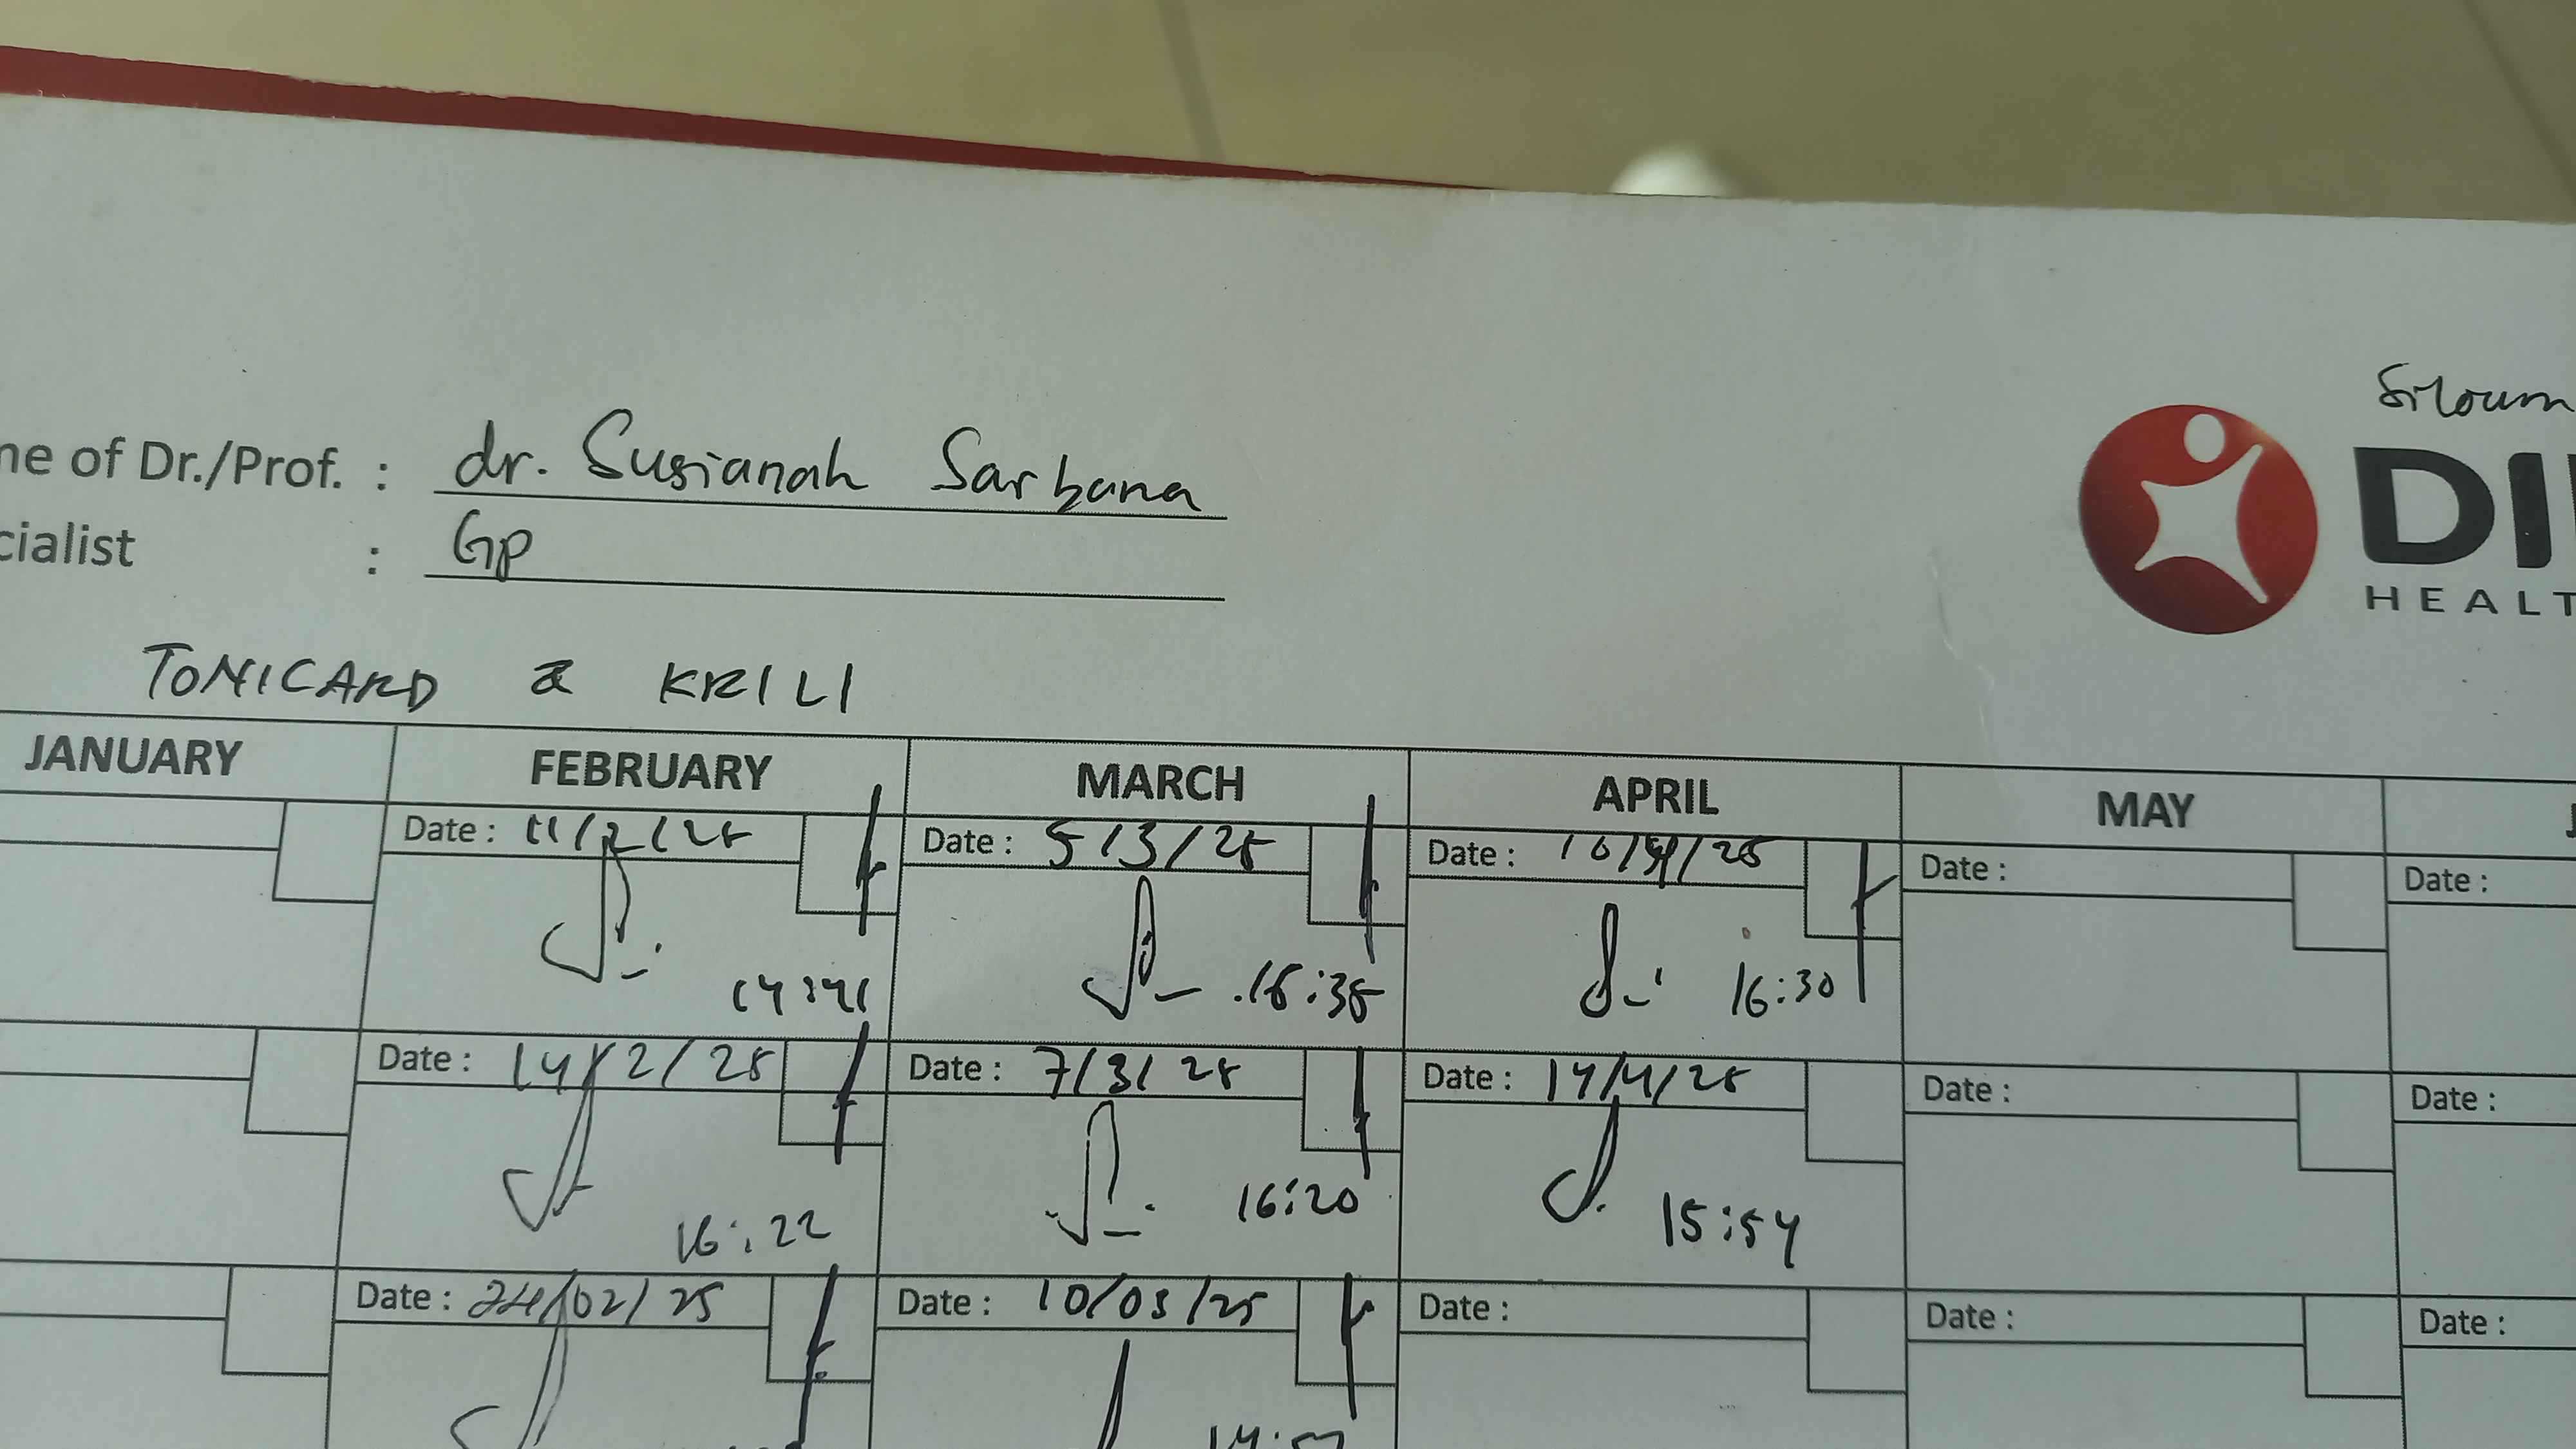 Siloum
DI
HEALT
ne of Dr./Prof. : dr. Susianah Sarbana
cialist : Gp
TONICARD & KRILI
JANUARY FEBRUARY MARCH APRIL MAY J
Date : 11/2/25 Date : 5/3/25 Date : 10/4/25 Date : Date :
14:41 16:35 16:30
Date : 14/2/25 Date : 7/3/25 Date : 14/4/25 Date : Date :
16:22 16:20 15:54
Date : 24/02/25 Date : 10/03/25 Date : Date : Date :